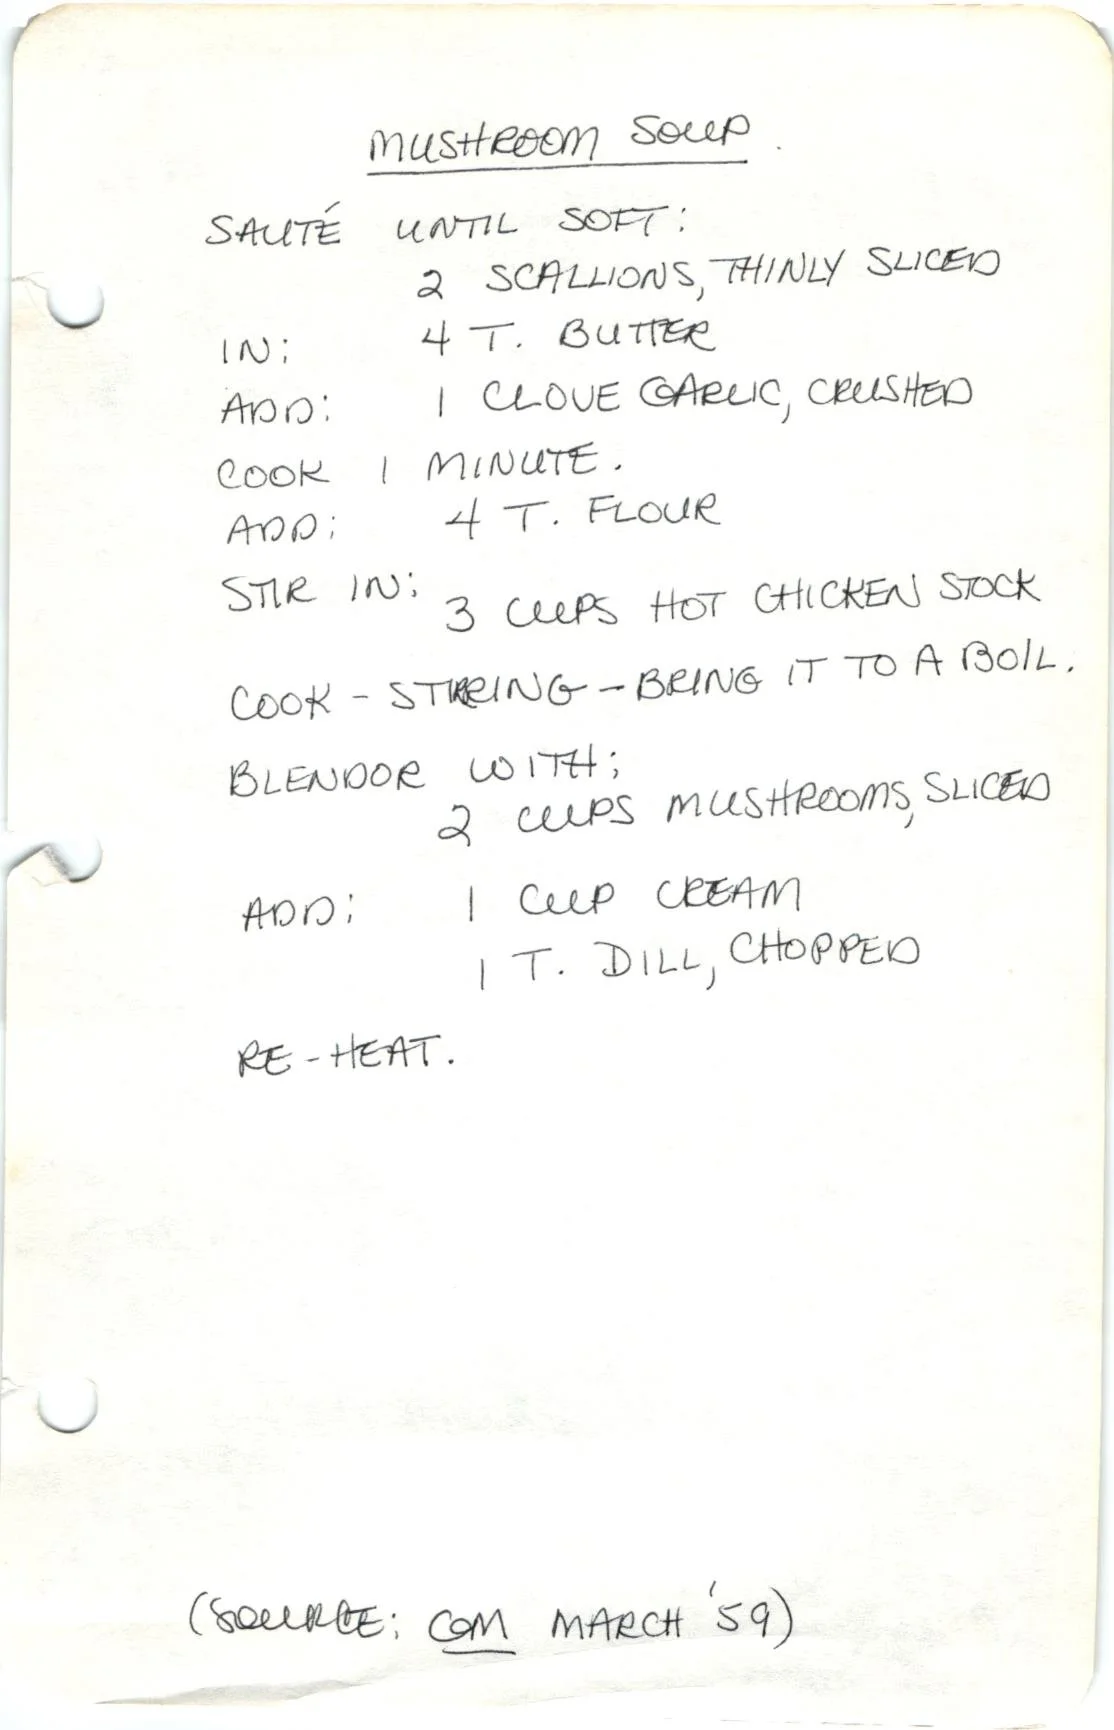 MUSHROOM SOUP.
SAUTÉ UNTIL SOFT:
2 SCALLIONS, THINLY SLICED
IN: 4 T. BUTTER
ADD: 1 CLOVE GARLIC, CRUSHED
COOK 1 MINUTE.
ADD: 4 T. FLOUR
STIR IN: 3 CUPS HOT CHICKEN STOCK
COOK - STIRRING - BRING IT TO A BOIL.
BLENDOR WITH;
2 CUPS MUSHROOMS, SLICED
ADD: 1 CUP CREAM
1 T. DILL, CHOPPED
RE-HEAT.
(SOURCE: COM MARCH '59)